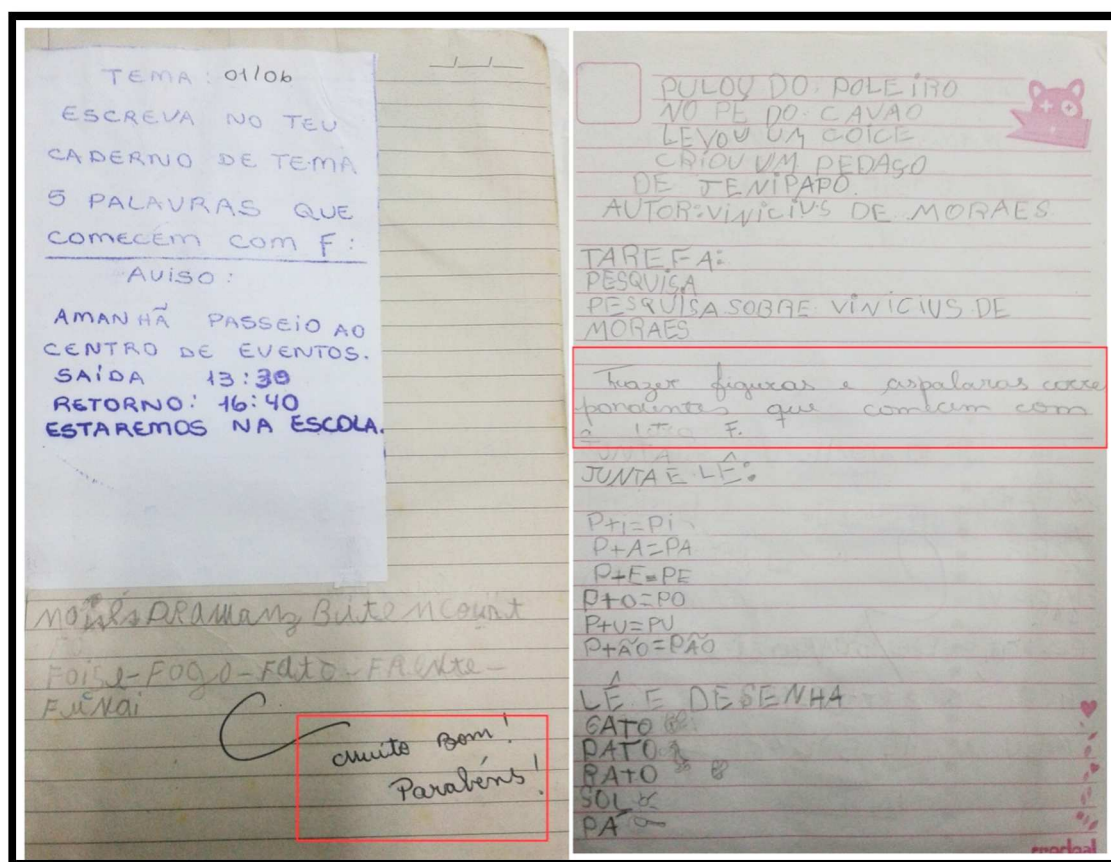 TEMA: 01/06
ESCREVA NO TEU
CADERNO DE TEMA
5 PALAVRAS QUE
COMECEM COM F:
AVISO:
AMANHÃ PASSEIO AO
CENTRO DE EVENTOS.
SAÍDA 13:30
RETORNO: 16:40
ESTAREMOS NA ESCOLA.
Butencourt
FOiSe-FOgO-FAtO-FRENte-
Muito Bom!
Parabéns!
PULOU DO POLEIRO
NO PE DO CAVAO
LEVOU UM COICE
CRIOU UM PEDASO
DE JENIPAPO.
AUTOR: VINICIUS DE MORAES
TAREFA:
PESQUISA
PESQUISA SOBRE VINICIUS DE
MORAES
Trazer figuras e aspalavras corre
pondentes que comecem com
F.
JUNTA E LÊ:
P+I=PI
P+A=PA
P+E=PE
P+O=PO
P+U=PU
P+ÃO=PÃO
LÊ E DESENHA
GATO
PATO
RATO
SOL
PÁ